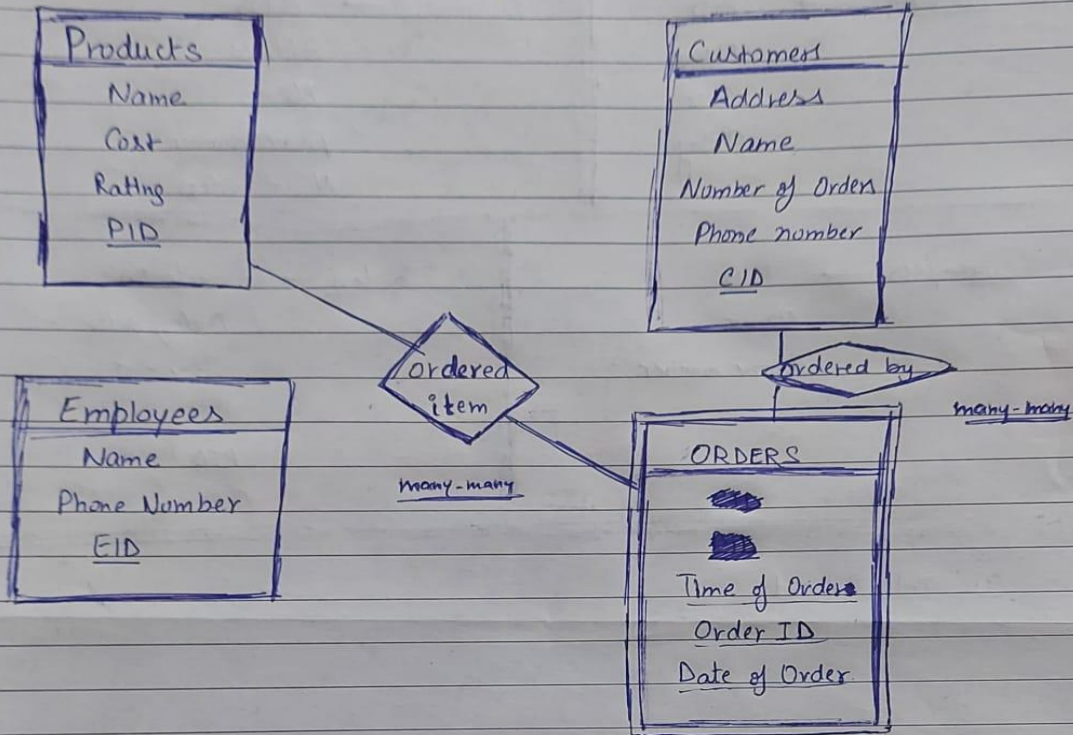 Products
Name
Cost
Rating
PID
Customers
Address
Name
Number of Orders
Phone number
CID
ordered
item
many-many
ordered by
many-many
Employees
Name
Phone Number
EID
ORDERS
Time of Order
Order ID
Date of Order